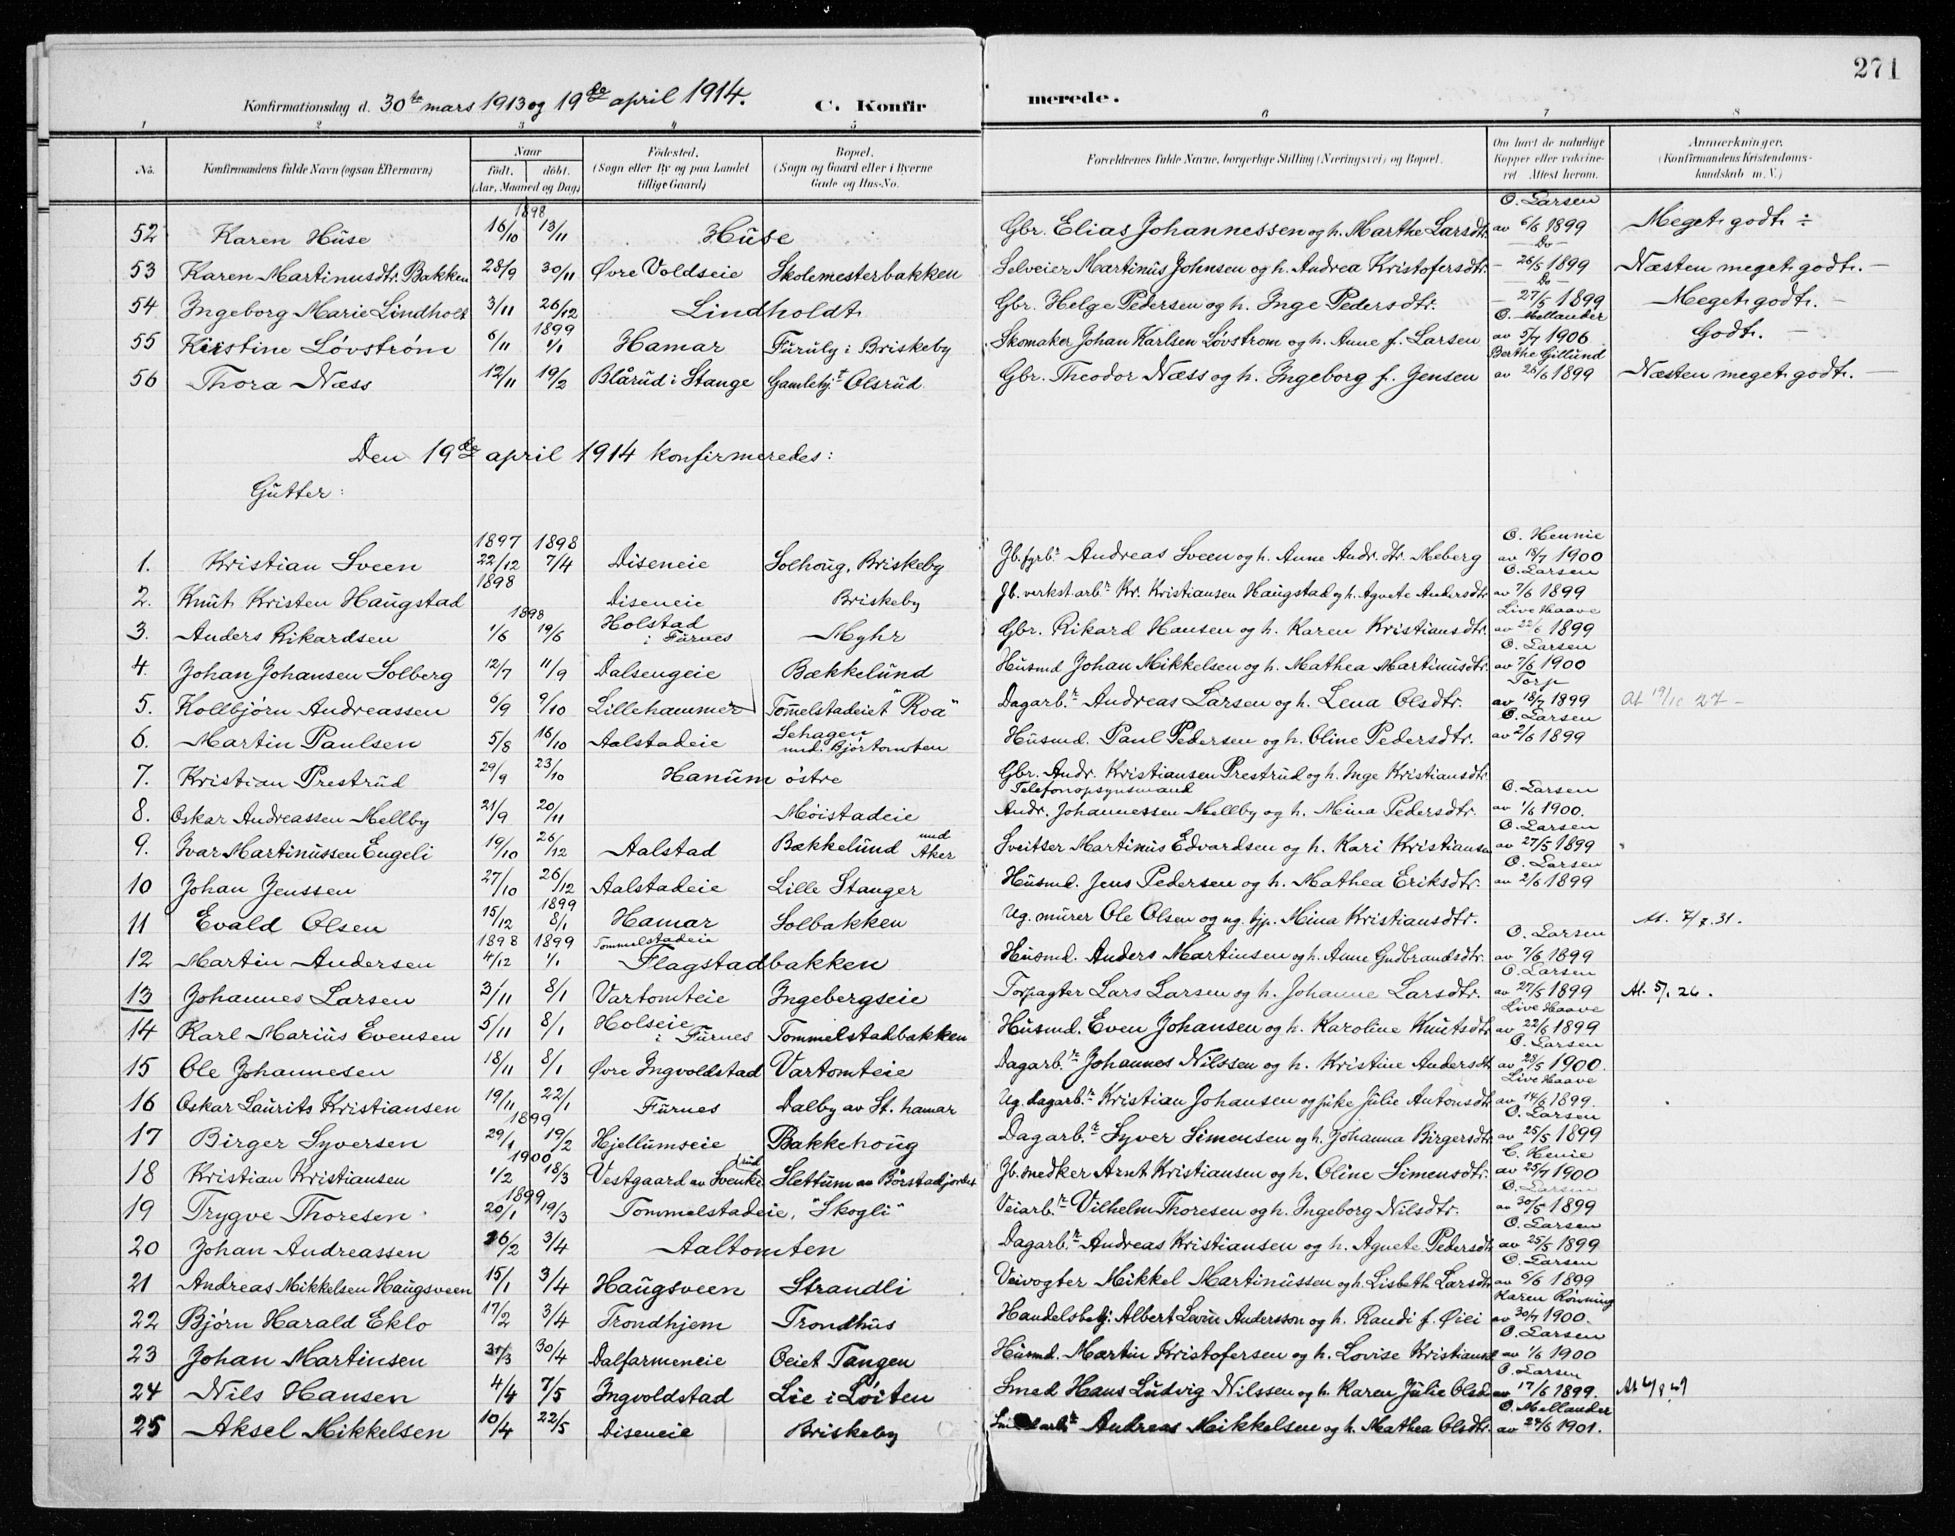 271
Konfirmationsdag d. 30te mars 1913 og 19de april 1914. C. Konfirmerede.
1 2 3 4 5 6 7 8
No. Konfirmandens fulde Navn (ogsaa Efternavn) Naar født. døbt. (Aar, Maaned og Dag) Fødested. (Sogn eller By og paa Landet tillige Gaard) Bopæl. (Sogn og Gaard eller i Byerne Gade og Hus-No. Forældrenes fulde Navne, borgerlige Stilling (Næringsvei) og Bopæl. Om havt de naturlige Kopper eller vaccineret. Attest herom. Anmærkninger. (Konfirmandens Kristendomskundskab m. V.)
1898 O. Larsen
52 Karen Huse 16/10 13/11 Huse Gbr. Elias Johannessen og h. Marthe Larsdtr. av 6/6 1899 Meget godt ÷
Do
53 Karen Martinusdtr. Bakken 28/9 30/11 Øvre Voldseie Skolemesterbakken Selveier Martinus Johnsen og h. Andrea Kristofersdtr. – 26/5 1899 Næsten meget godt. –
Do
54 Ingeborg Marie Lindholt 3/11 26/12 Lindholdt Gbr. Helge Pedersen og h. Inge Pedersdtr. – 27/5 1899 Meget godt. –
1899 O. Mellander
55 Kristine Løvstrøm 6/11 1/1 Hamar Furuly i Briskeby Skomaker Johan Karlsen Løvstrøm og h. Anne f. Larsen av 5/7 1906 Godt. –
Berthe Gillund
56 Thora Næss 12/11 19/2 Blårud i Stange Gamlehjt Olsrud Gbr. Theodor Næss og h. Ingeborg f. Jensen av 26/6 1899 Næsten meget godt. –
Den 19de april 1914 konfirmeredes:
Gutter:
1897 1898 O. Hennie
1. Kristian Sveen 22/12 7/4 Diseneie Solhoug, Briskeby Jb. fyrbr Andreas Sveen og h. Anne Andr. dtr. Moberg av 18/7 1900
1898 O. Larsen
2. Knut Kristen Haugstad Diseneie Briskeby Jb. verkst. arbr Kr. Kristiansen Haugstad og h. Agnete Andersdtr. av 7/6 1899
1898 Live Haave
3. Anders Rikardsen 1/6 19/6 Holstad i Furnes Myhr Gbr. Rikard Hansen og h. Karen Kristiansdtr. av 22/6 1899
O. Larsen
4. Johan Johansen Solberg 12/7 11/9 Dalsengeie Bækkelund Husmd Johan Mikkelsen og h. Mathea Martinusdtr. av 7/6 1900
Torp
5. Kollbjørn Andreassen 6/9 9/10 Lillehammer Tommelstadeiet "Roa" Dagarb.r Andreas Larsen og h. Lena Olsdtr. av 18/7 1899 At 19/10 27 –
O. Larsen
6. Martin Paulsen 5/8 16/10 Aalstadeie Sehagen und. Bjørtomten Husmd. Paul Pedersen og h. Oline Pedersdtr. av 2/6 1899
7. Kristian Prestrud 29/9 23/10 Hanum østre Gbr. Andr. Kristiansen Prestrud og h. Inge Kristiansdtr.
Telefonopsynsmand O. Larsen
8. Oskar Andreassen Mellby 21/9 20/11 Moistadeie Andr. Johannessen Mellby og h. Mina Pedersdtr. av 1/6 1900.
O. Larsen
9. Ivar Martinussen Engeli 19/10 26/12 Aalstad Bækkelund und Aker Sveitser Martinus Edvardsen og h. Kari Kristiansen av 27/5 1899
O. Larsen
10 Johan Jenssen 27/10 26/12 Aalstadeie Lille Stanger Husmd. Jens Pedersen og h. Mathea Eriksdtr. av 2/6 1899
1899
11 Evald Olsen 15/12 8/1 Hamar Solbakken Ug. murer Ole Olsen og ug. tjp. Mina Kristiansdtr. At. 7/7.31.
1898 1899 Tommelstadeie O. Larsen
12 Martin Andersen 4/12 1/1 Flagstadbakken Husmd. Anders Martinsen og h. Anne Gudbrandsdtr. av 7/6 1899
O. Larsen
13 Johannes Larsen 3/11 8/1 Vartomteie Ingebergseie Forpagter Lars Larsen og h. Johanne Larsdtr. av 27/5 1899 At. 5/1 26.
Live Haave
14 Karl Marius Evensen 5/11 8/1 Holseie i Furnes Tommelstadbakken Husmd. Even Johansen og h. Karoline Knutsdtr av 22/6 1899
O. Larsen
15 Ole Johannesen 18/11 8/1 Øvre Ingvoldstad Vartomteie Dagarb.r Johannes Nilssen og h. Kristine Andersdt. av 28/5 1900.
Live Haave
16 Oskar Laurits Kristiansen 19/11 22/1 Furnes Dalby av St. hamar Ug. dagarb.r Kristian Johansen og pike Julie Antonsdt av 14/6 1899.
1899 O. Larsen
17 Birger Syversen 29/1 19/2 Hjellumseie Bakkehoug Dagarb.r Syver Simensen og h. Johanna Birgersdt. av 25/5 1899
1900 C. Henie
18 Kristian Kristiansen 1/2 18/3 Vestgaard av Svenkerud Slettum av Børstadjordet Jb. snedker Arnt Kristiansen og h. Oline Simensdtr. av 25/7 1900
1899 O. Larsen
19 Trygve Thoresen 20/1 19/3 Tommelstadeie, "Skogli" Veiarb.r Vilhelm Thoresen og h. Ingeborg Nilsdtr. av 30/5 1899
O. Larsen
20 Johan Andreassen 26/2 3/4 Aaltomten Dagarb.r Andreas Kristiansen og h. Agnete Pedersdt av 25/5 1899
O. Larsen
21 Andreas Mikkelsen Haugsveen 15/1 3/4 Haugsveen Strandli Veivogter Mikkel Martinussen og h. Lisbeth Larsdtr. av 6/6 1899
Karen Rønning
22 Bjørn Harald Eklo 17/2 3/4 Trondhjem Trondhus Handelsbetj. Albert Levin Andersson og h. Randi f. Øiei av 30/7 1900.
O. Larsen
23 Johan Martinsen 31/3 30/4 Dalfarmeneie Oeiet Tangen Husmd. Martin Kristofersen og h. Lovise Kristiansd av 1/6 1900
O. Larsen
24 Nils Hansen 4/4 7/5 Ingvoldstad Lie i Løiten Smed Hans Ludvig Nilssen og h. Karen Julie Olsd. av 17/6 1899.
O. Mellander
25 Aksel Mikkelsen 10/4 22/5 Diseneie Briskeby Andreas Mikkelsen og h. Mathea Olsdtr. av 24/6 1901.